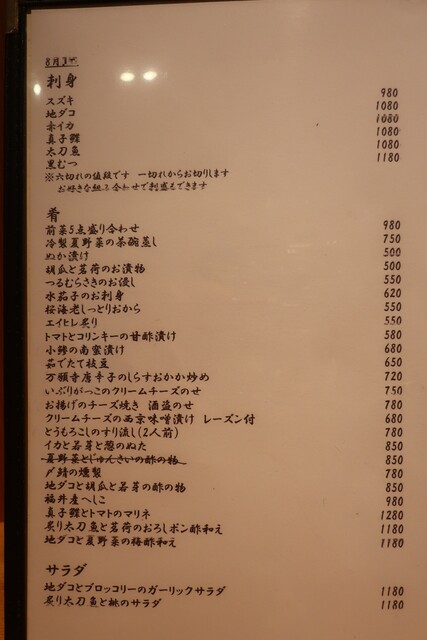 8月3日
刺身
スズキ 980
地ダコ 1080
赤イカ 1080
真子鰈 1080
太刀魚 1080
黒むつ 1180
※六切れの値段です 一切れからお切りします
お好きな組み合わせで刺盛もできます
肴
前菜5点盛り合わせ 980
冷製夏野菜の茶碗蒸し 750
ぬか漬け 500
胡瓜と茗荷のお漬物 500
つるむらさきのお浸し 550
水茄子のお刺身 620
桜海老しっとりおから 550
エイヒレ炙り 550
トマトとコリンキーの甘酢漬け 580
小鯵の南蛮漬け 680
茹でたて枝豆 650
万願寺唐辛子のしらすおかか炒め 720
いぶりがっこのクリームチーズのせ 750
お揚げのチーズ焼き 酒盗のせ 780
クリームチーズの西京味噌漬け レーズン付 680
とうもろこしのすり流し(2人前) 780
イカと若芽と葱のぬた 850
夏野菜とじゅんさいの酢の物 850
〆鯖の燻製 780
地ダコと胡瓜と若芽の酢の物 850
福井産へしこ 980
真子鰈とトマトのマリネ 1280
炙り太刀魚と茗荷のおろしポン酢和え 1180
地ダコと夏野菜の梅酢和え 1180
サラダ
地ダコとブロッコリーのガーリックサラダ 1180
炙り太刀魚と桃のサラダ 1180